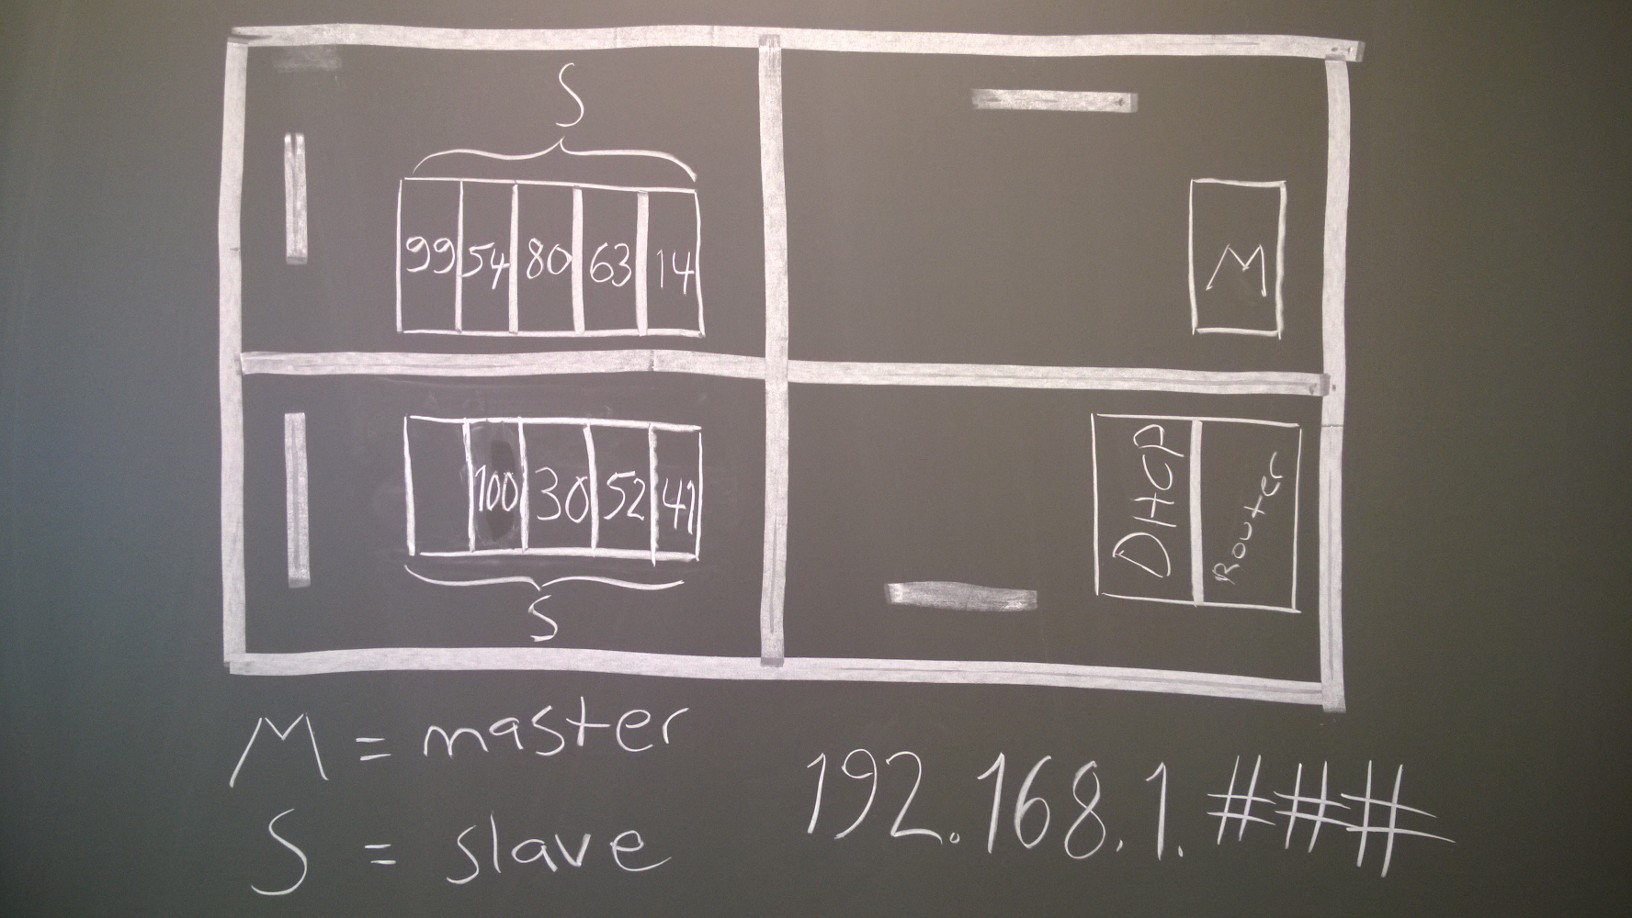 S
99 54 80 63 14
M
100 30 52 41
DHCP
Router
S
M = master
S = slave
192.168.1.###